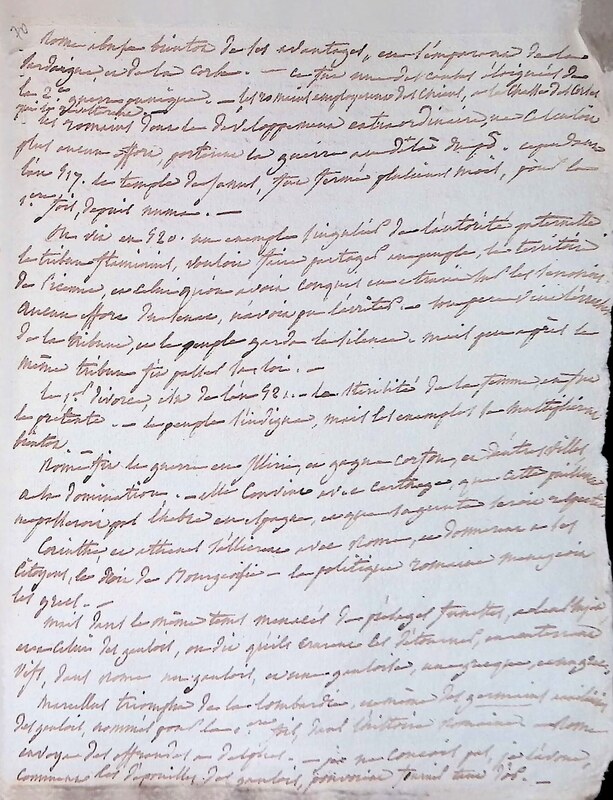 30
Rome abusa bientot de ses avantages, en s'emparant de la
Sardaigne et de la corse. — ce fut une des causes éloignées de
la 2.e guerre punique. — les romains employerent des chiens, à la chasse des Corses
les romains dans le developpement extraordinaire, ne calculoient
plus aucun effort, porterent la guerre au delà du pô. cependant
l'an 517. le temple de Janus, fut fermé plusieurs mois, pour la
1.ere fois, depuis numa. —
On vit en 520. un exemple singulier de l'autorité paternelle
le tribun flaminius, vouloit faire partager au peuple, le territoire
de Picenne et celui qu'on avoit conquis en outre sur les Senonois
aucun effort du Senat, n'avoit pu l'arrêter. — son pere
de la tribune, et le peuple garda le silence. — mais peu après le
même tribun fit passer sa loi. —
le 1.er divorce, est de l'an 521. — la sterilité de la femme en fut
le prétexte. — le peuple s'indigna, mais les exemples se multiplièrent
bientot
Rome fit la guerre en Illirie, et gagna corfou, et d'autres villes
à sa domination. — elle convint avec carthage que cette puissance
ne passeroit pas l'hebre en espagne, et que sagonte seroit respectée
Corinthe et athenes s'allierent avec Rome, et donnerent à ses
Citoyens, le droit de Bourgeoisie — la politique romaine menageoit
les grecs. —
mais dans le même tems menacés de présages funestes,
et celui des gaulois, on dit qu'ils crurent les détourner, en enterrant
vifs, dans Rome un gaulois, et une gauloise, un grec, et une grecque
Marcellus triomphe de la lombardie, et même des germains
des gaulois, nommés pour la 1.ere fois, dans l'histoire romaine — Rome
envoya des offrandes à delphes. — je ne conçois pas, je l'avoue,
comment les depouilles des gaulois, pouvoient fournir tant d'or. —